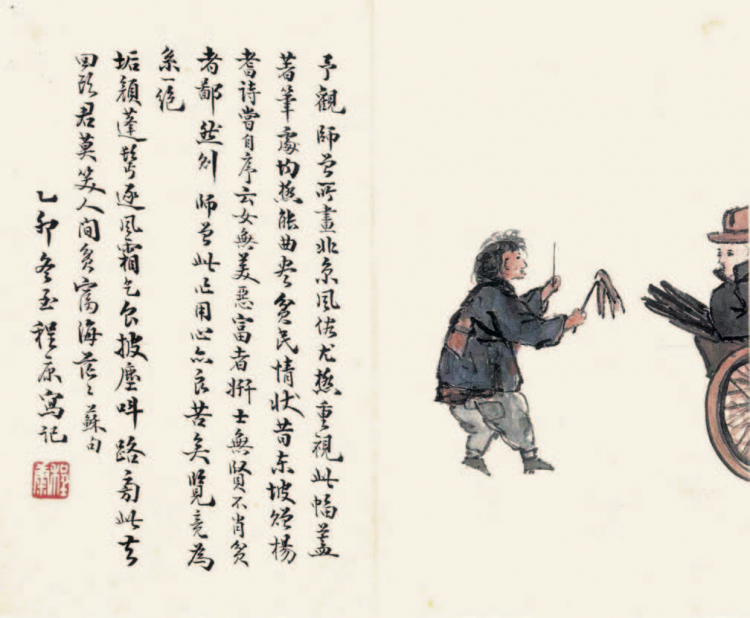 予觀師曾所畫北京風俗尤極重視此幅蓋
著筆處均極能曲盡貧民情狀昔東坡贈楊
耆詩嘗自序云女無美惡富者妍士無賢不肖貧
者鄙然則師曾此作用心亦良苦矣覽竟為
系一絕
垢顏蓬鬢逐風霜乞食披塵叫路旁此去
回頭君莫笑人間貧富海茫々蘇句
乙卯冬至程康寫記
程康